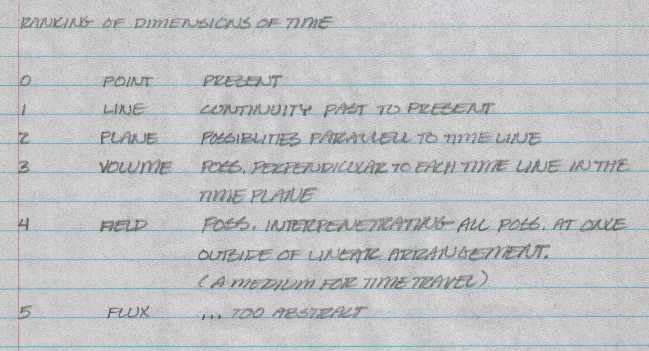 RANKING OF DIMENSIONS OF TIME
0 POINT PRESENT
1 LINE CONTINUITY PAST TO PRESENT
2 PLANE POSSIBLITIES PARALLELL TO TIME LINE
3 VOLUME POSS. PERPENDICULAR TO EACH TIME LINE IN THE
TIME PLANE
4 FIELD POSS. INTERPENETRATING ALL POSS. AT ONCE
OUTSIDE OF LINEAR ARRANGEMENT.
(A MEDIUM FOR TIME TRAVEL)
5 FLUX ... TOO ABSTRACT